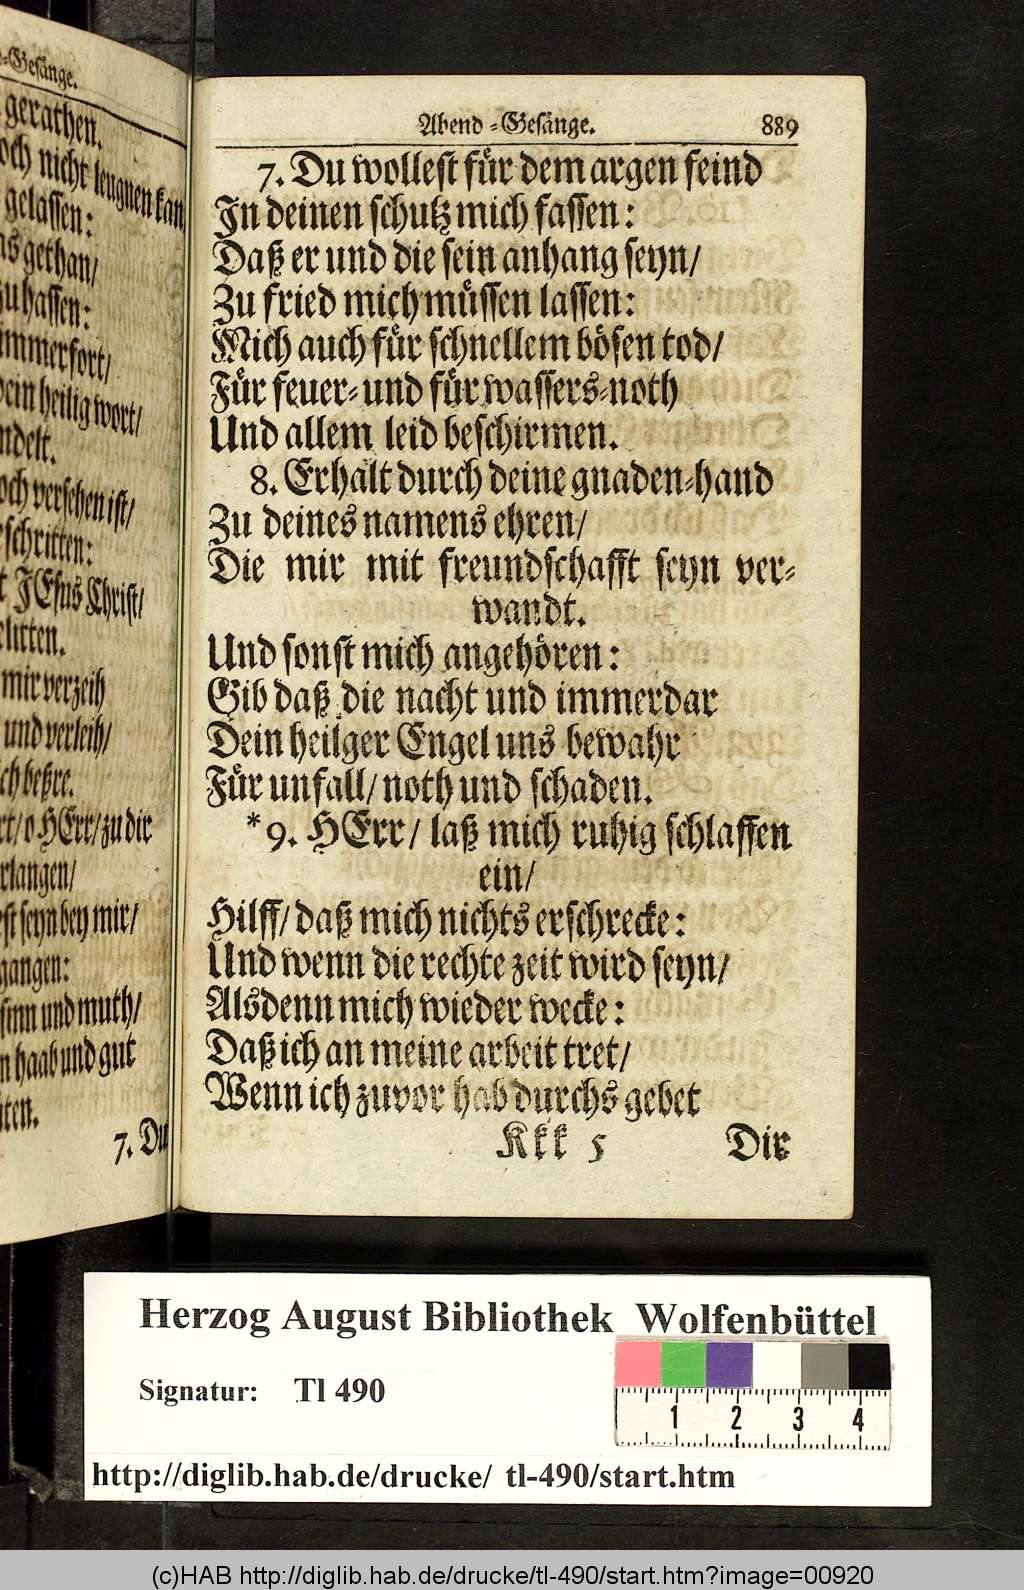 d-Gesänge.
gerathen.
och nicht leugnen kan
gelassen:
gethan/
zu hassen:
immerfort/
dein heilig wort/
ndelt.
och versehen ist/
schritten:
t JEsus Christ/
elitten.
mir verzeih
und verleih/
ch beßre.
rt/ o HErr/ zu dir
rlangen/
est seyn bey mir/
gangen:
sinn und muth/
n haab und gut
ten.
7. Du
Abend-Gesänge. 889
7. Du wollest für dem argen feind
In deinen schutz mich fassen:
Daß er und die sein anhang seyn/
Zu fried mich müssen lassen:
Mich auch für schnellem bösen tod/
Für feuer- und für wassers-noth
Und allem leid beschirmen.
8. Erhalt durch deine gnaden-hand
Zu deines namens ehren/
Die mir mit freundschafft seyn ver-
wandt.
Und sonst mich angehören:
Gib daß die nacht und immerdar
Dein heilger Engel uns bewahr
Für unfall/ noth und schaden.
*9. HErr/ laß mich ruhig schlaffen
ein/
Hilff/ daß mich nichts erschrecke:
Und wenn die rechte zeit wird seyn/
Alsdenn mich wieder wecke:
Daß ich an meine arbeit tret/
Wenn ich zuvor hab durchs gebet
Kkk 5 Dir
Herzog August Bibliothek Wolfenbüttel
Signatur: Tl 490
1 2 3 4
http://diglib.hab.de/drucke/ tl-490/start.htm
(c)HAB http://diglib.hab.de/drucke/tl-490/start.htm?image=00920